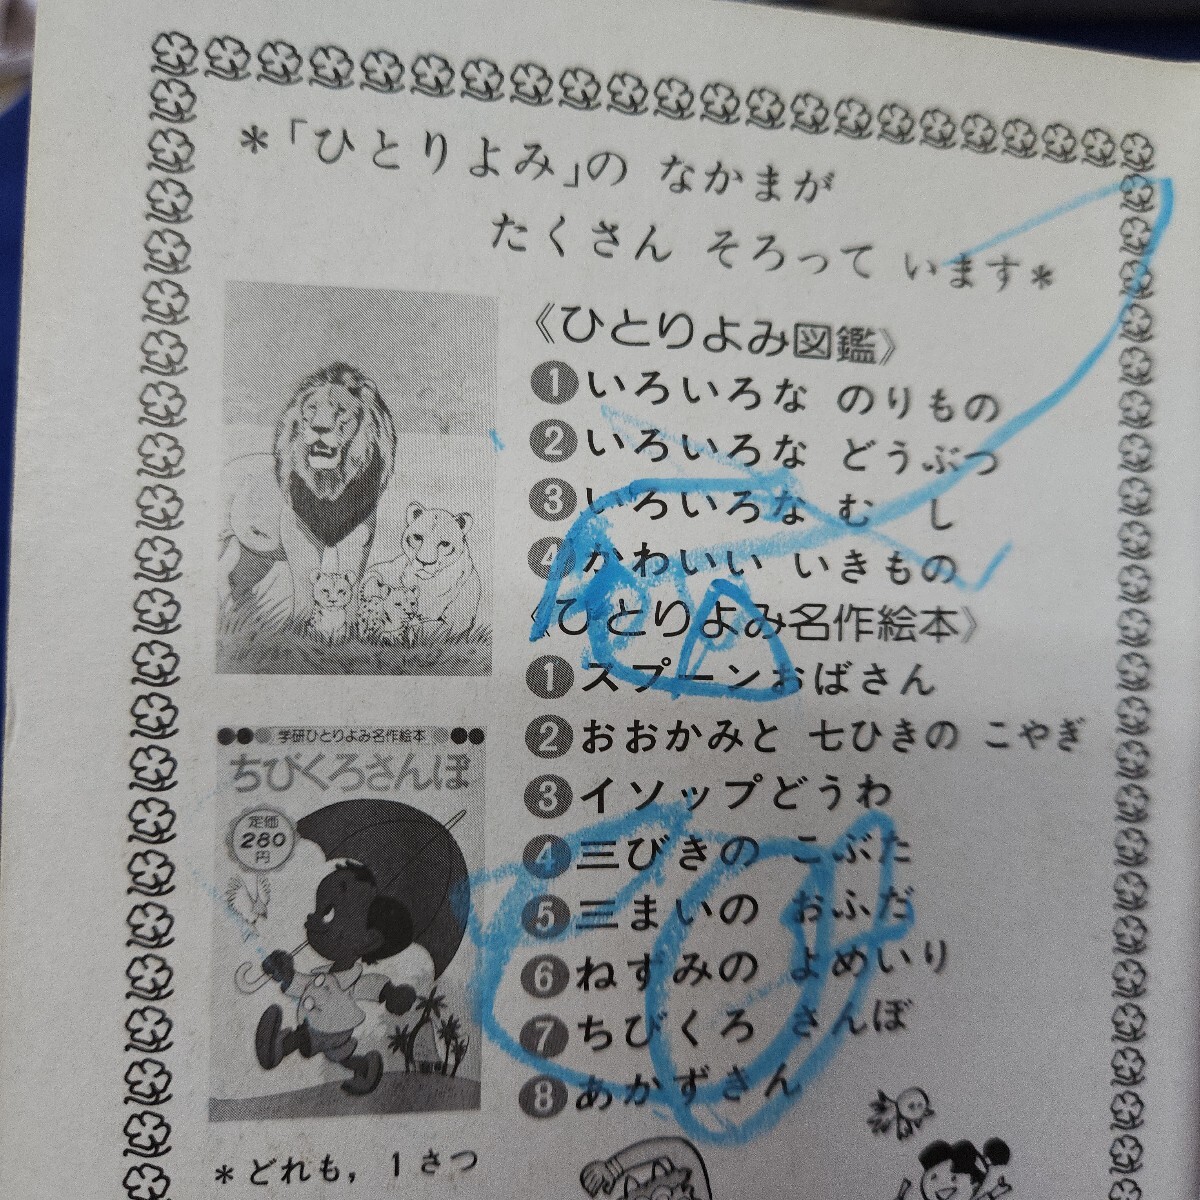 *「ひとりよみ」の なかまが
たくさん そろって います*
《ひとりよみ図鑑》
1 いろいろな のりもの
2 いろいろな どうぶつ
3 いろいろな む し
4 かわいい いきもの
《ひとりよみ名作絵本》
1 スプーンおばさん
2 おおかみと 七ひきの こやぎ
3 イソップどうわ
4 三びきの こぶた
5 三まいの おふだ
6 ねずみの よめいり
7 ちびくろ さんぼ
8 あかずきん
学研ひとりよみ名作絵本
ちびくろさんぼ
定価
280
円
*どれも, 1さつ